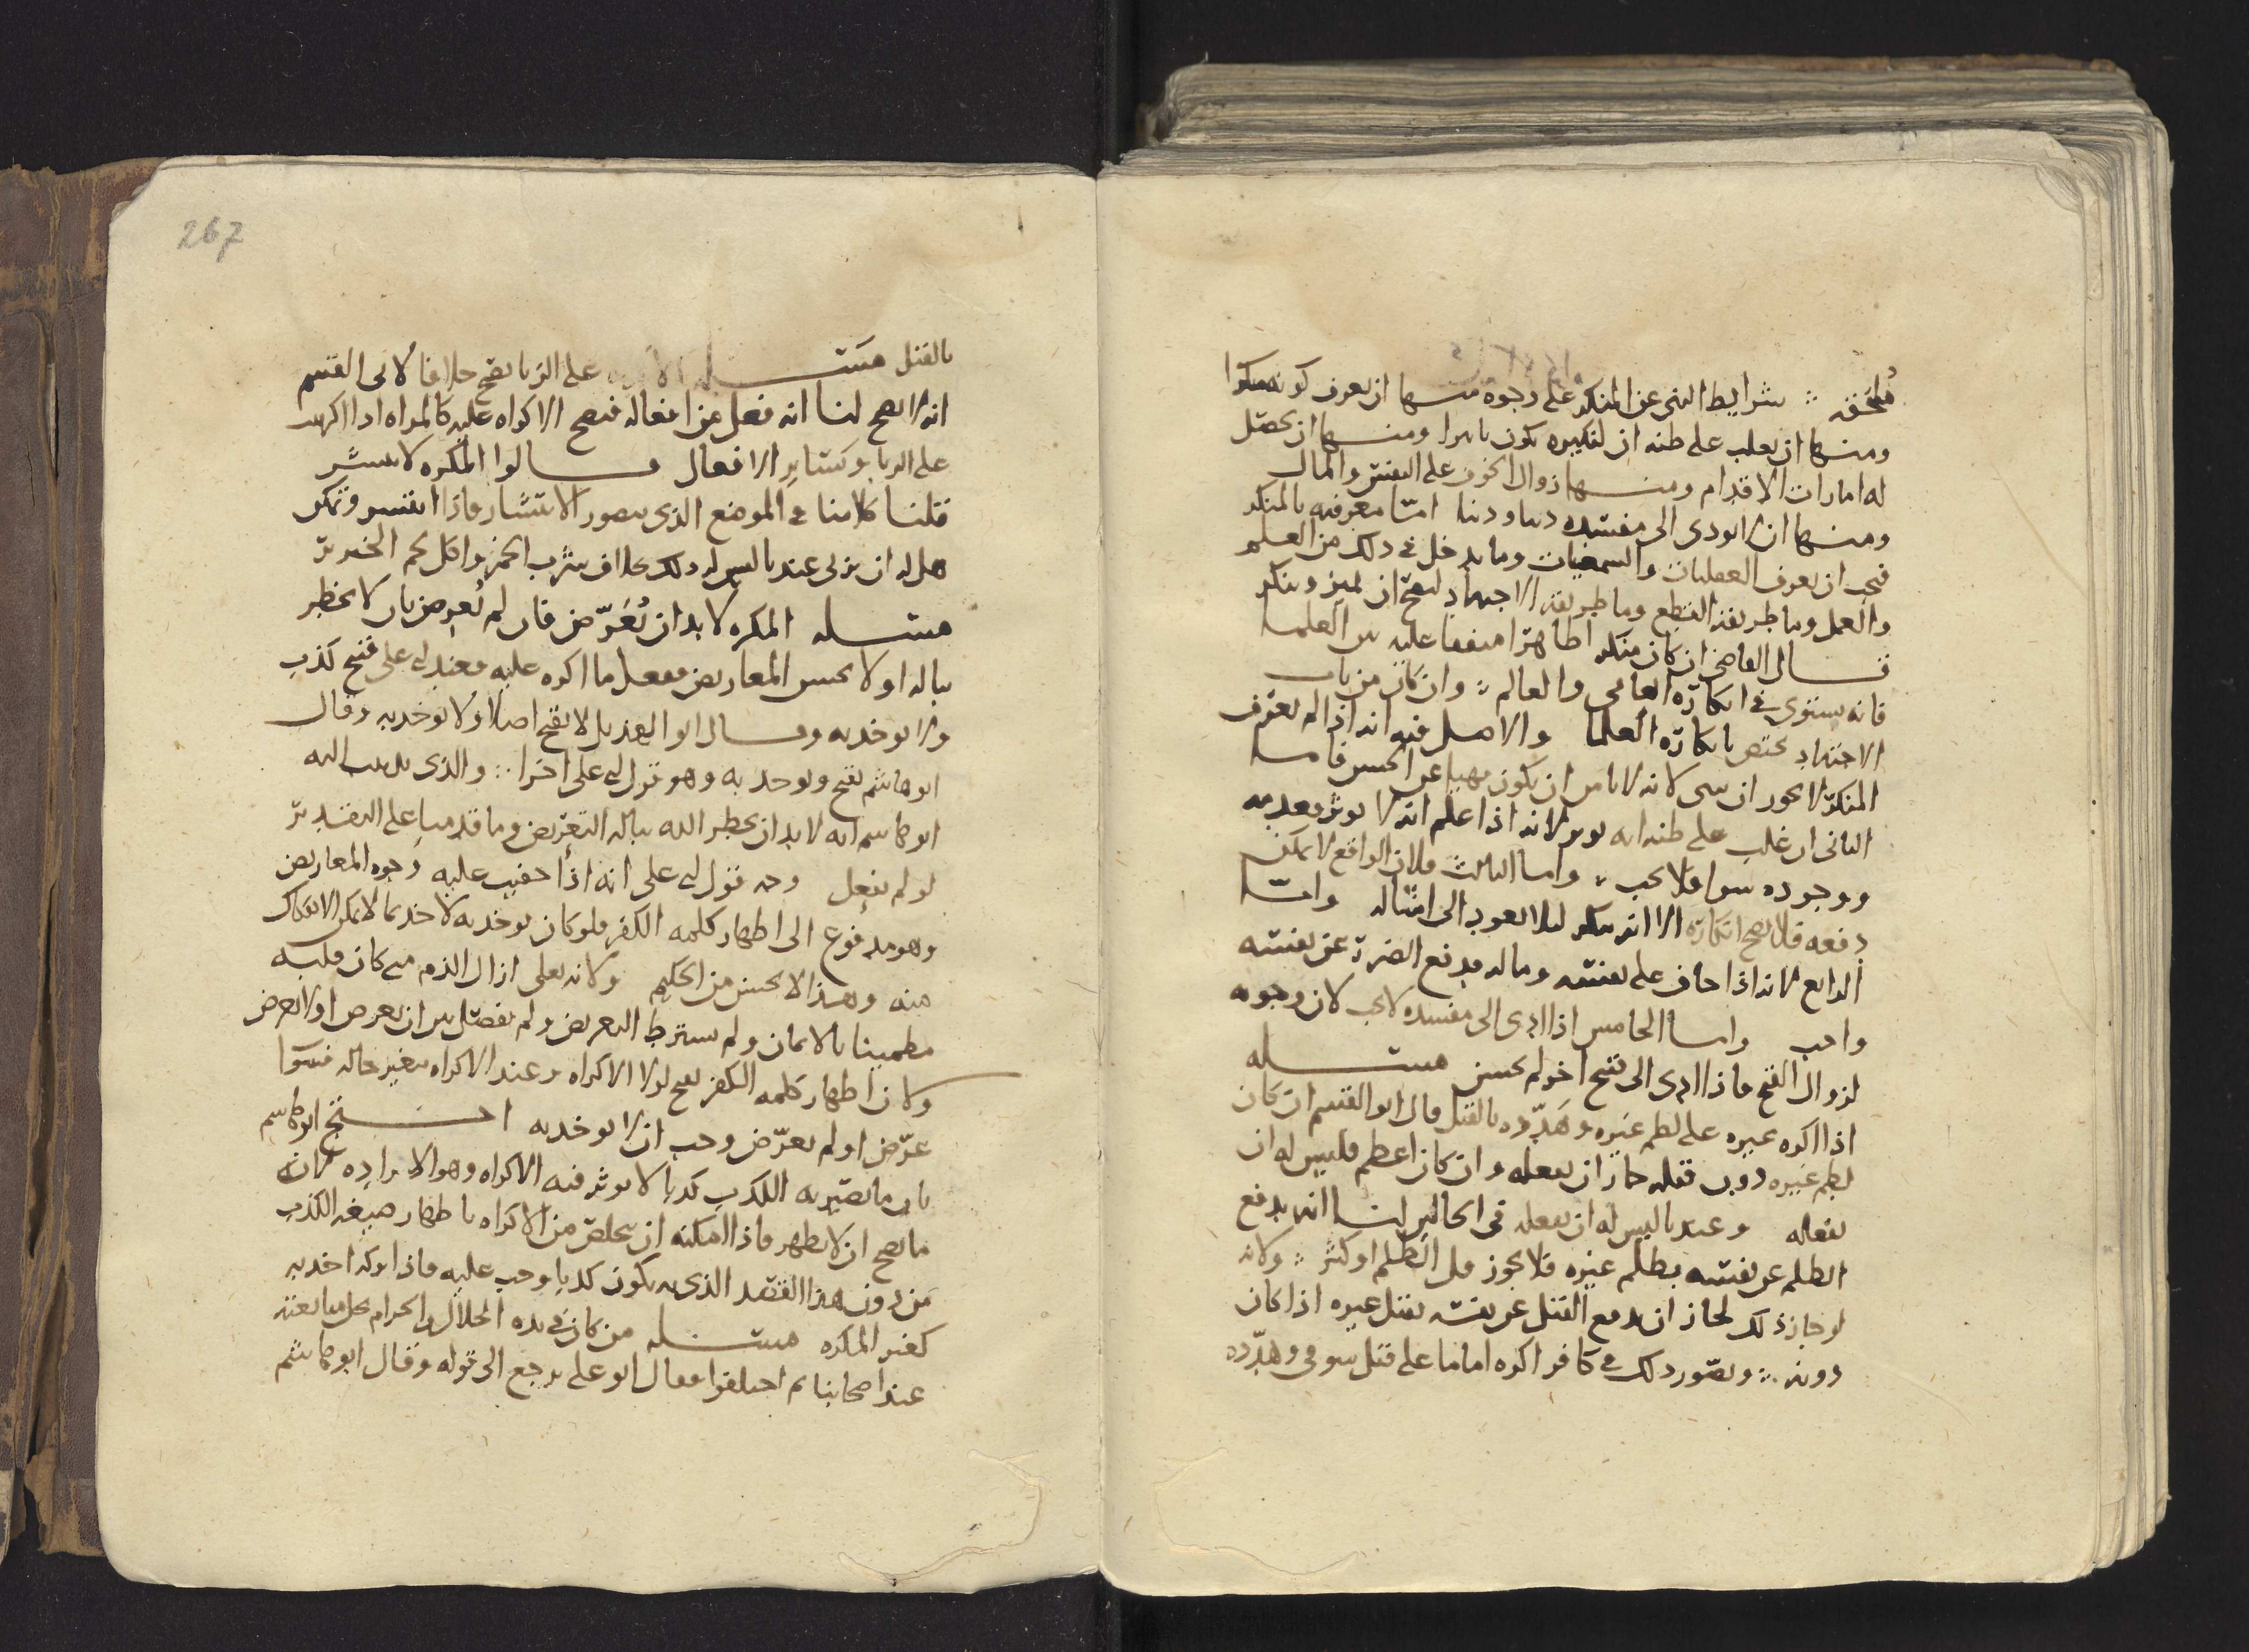 ملحقه ∴ شرايط النهى عن المنكر على وجوه منها ان يعرف كونه منكرا
ومنها ان يغلب على ظنه ان لنكيره يكون تاثيرا ومنها ان يحصل
له امارات الاقدام ومنها زوال الخوف على النفس والمال
ومنها ان لا يودى الى مفسده دينا ودنيا امّا معرفته بالمنكر
فيجب ان يعرف العقليات والسمعيات وما يدخل فى ذلك من العلم
والعمل وما طريقه القطع وما طريقه الاجتهاد ليصح ان يميز وينكر
قال القاضى ان كان منكرا ظاهرا متفقا عليه بين العلما
فانه يستوى فى انكاره العامى والعالم ∴ وان كان من باب
الاجتهاد يختص بانكاره العلما والاصل فيه انه اذا لم يعرف
المنكر لا يجوز ان ينهى لانه لا يامن ان يكون نهيا عن الحسن فاما
الثانى ان غلب على ظنه انه يوثر لانه اذا علم انه لا يوثر فعدمه
ووجوده سوا فلا يجب ∴ واما الثالث فلان الواقع لا يمكن
دفعه فلا يصح انكاره الا انه ينكر ليلا يعود الى امثاله وامّا
الرابع لانه اذا خاف على نفسه وماله فدفع الضرر عن نفسه
واجب واما الخامس اذا ادى الى مفسده لا يجب لان وجوبه
لزوال القبح فاذا ادى الى قبح اخر لم يحسن مسله
اذا اكره غيره على لطم غيره وهدّده بالقتل قال ابو القسم ان كان
لطم غيره دون قتله جاز ان يفعله وان كان اعظم فليس له ان
يفعله وعندنا ليس له ان يفعله فى الحالين لنا انه يدفع
الظلم عن نفسه بظلم غيره فلا يجوز قل الظلم او كثر ∴ ولانه
لو جاز ذلك لجاز ان يدفع القتل عن نفسه بقتل غيره اذا كان
دونه ∴ ويتصور ذلك فى كافر اكره اماما على قتل سوقى وهدّده
267
بالقتل مسله الاكراه على الزنا يصح خلافا لابى القسم
انه لا يصح لنا انه فعل من افعاله فيصح الاكراه عليه كالمراه اذا اكرهت
على الزنا وكسائر الافعال قالوا المكره لا ينتشر
قلنا كلامنا فى الموضع الذى يتصور الانتشار فاذا انتشر وتمكن
هل له ان يزنى عندنا ليس له ذلك بخلاف شرب الخمر واكل لحم الخنزير
مسله المكره لا بد ان يُعَرّض فان لم يُعرض بان لا يخطر
بباله او لا يحسن المعاريض ففعل ما اكره عليه فعند ابى على قبح كذب
ولا يوخذ به وقال ابو الهذيل لا يقبح اصلا ولا يوخذ به وقال
ابو هاشم يقبح ويوخذ به وهو قول ابى على اخرا ∴ والذى يذهب اليه
ابو هاشم انه لا بد ان يخطر الله بباله التعريض وما قدمنا على التقدير
لو لم يفعل وجه قول ابى على انه اذا خفيت عليه وجوه المعاريض
وهو مدفوع الى اظهار كلمه الكفر فلو كان يوخذ به لاخذ بما لا يمكن الانفكاك
منه وهذا لا يحسن من الحكيم ولانه تعلى ازال الذم متى كان قلبه
مطمينا بالايمان ولم يشترط التعريض ولم يفصل بين ان يعرض او لا يعرض
ولان اظهار كلمه الكفر يقبح لولا الاكراه وعند الاكراه يتغير حاله فسوا
عرّض او لم يعرّض وجب ان لا يوخذ به احتج ابو هاشم
بان ما يصير به الكذب كذبا لا يوثر فيه الاكراه وهو الاراده لانه
ما يصح ان لا يظهر فاذا امكنه ان يتخلص من الاكراه باظهار صيغه الكذب
من دون هذا القصد الذى به يكون كذبا وجب عليه فاذا تركه اخذ به
كغير المكره مسله من كان فى يده الحلال والحرام يحل مبايعته
عند اصحابنا ثم اختلفوا فقال ابو على يرجع الى قوله وقال ابو هاشم